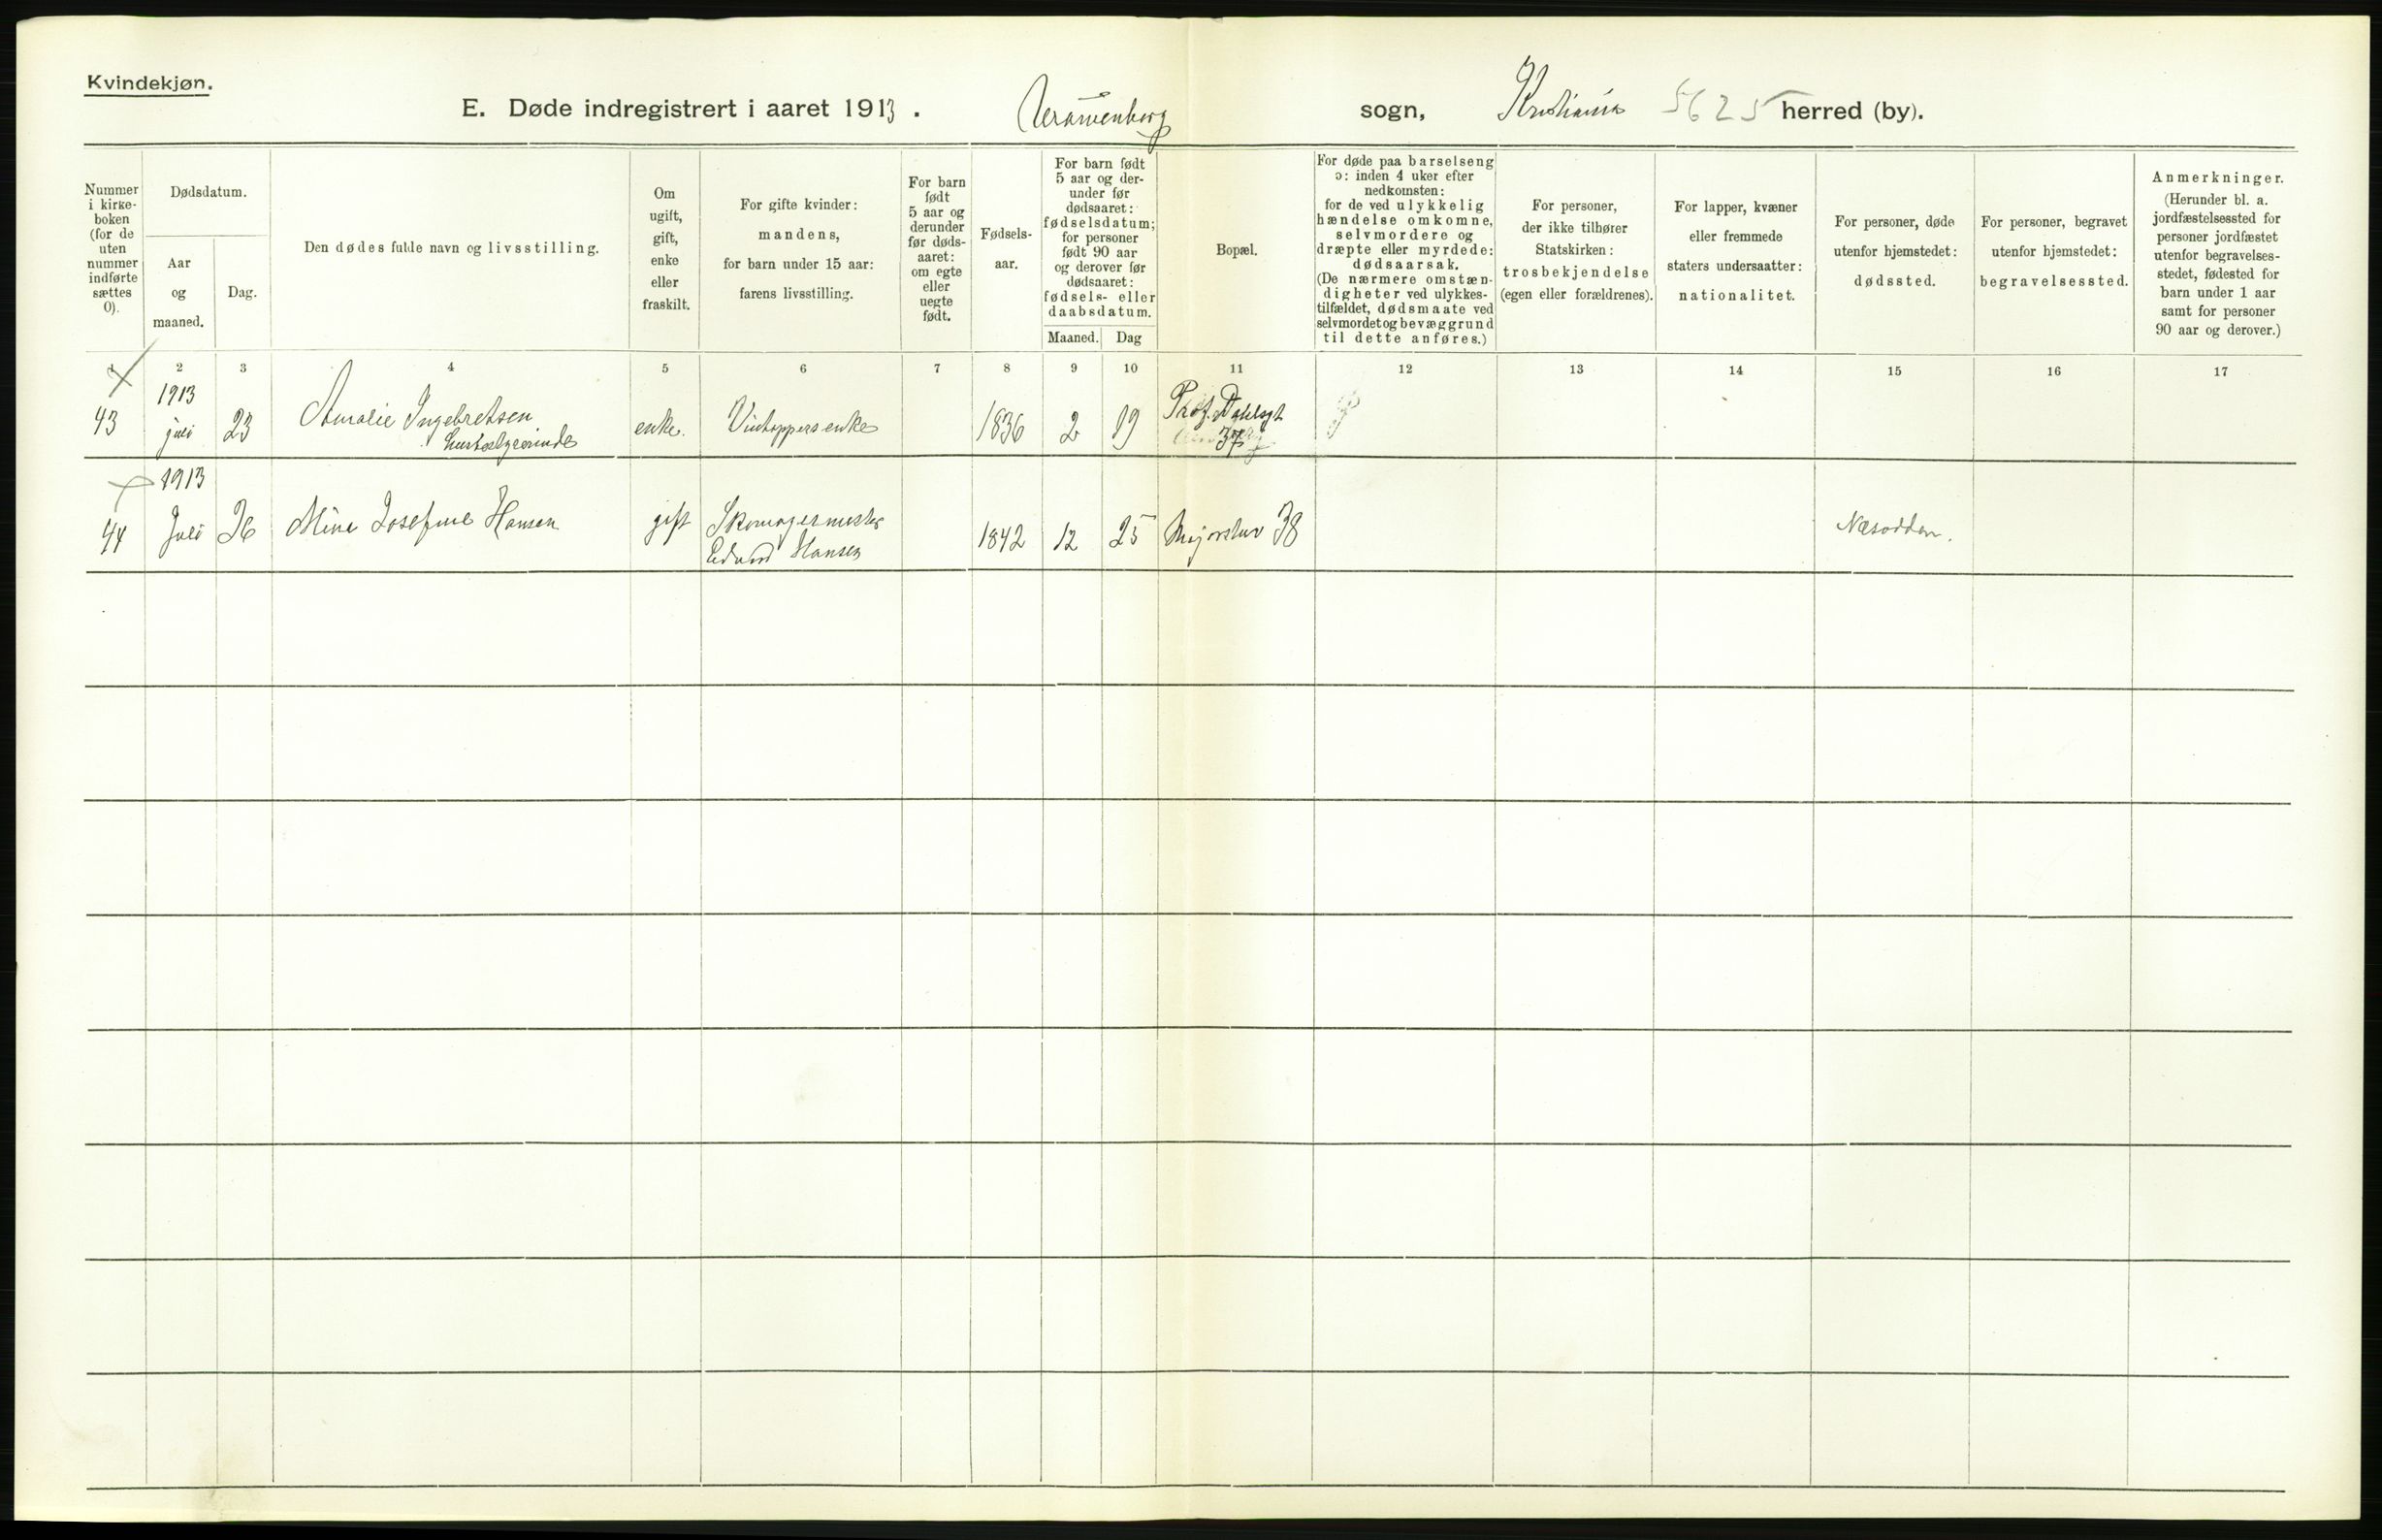 Kvindekjøn.
E. Døde indregistrert i aaret 1913. Uranienborg sogn, Kristiania 5625 herred (by).
Nummer i kirke- boken (for de uten nummer indførte sættes 0).
Dødsdatum.
Aar og maaned.
Dag.
Den dødes fulde navn og livsstilling.
Om ugift, gift, enke eller fraskilt.
For gifte kvinder: mandens, for barn under 15 aar: farens livsstilling.
For barn født 5 aar og derunder før døds- aaret: om egte eller uegte født.
Fødsels- aar.
For barn født 5 aar og der- under før dødsaaret: fødselsdatum; for personer født 90 aar og derover før dødsaaret: fødsels- eller daabsdatum.
Maaned. Dag
Bopæl.
For døde paa barselseng ɔ: inden 4 uker efter nedkomsten: for de ved ulykkelig hændelse omkomne, selvmordere og dræpte eller myrdede: dødsaarsak. (De nærmere omstæn- digheter ved ulykkes- tilfældet, dødsmaate ved selvmordet og bevæggrund til dette anføres.)
For personer, der ikke tilhører Statskirken: trosbekjendelse (egen eller forældrenes).
For lapper, kvæner eller fremmede staters undersaatter: nationalitet.
For personer, døde utenfor hjemstedet: dødssted.
For personer, begravet utenfor hjemstedet: begravelsessted.
Anmerkninger. (Herunder bl. a. jordfæstelsessted for personer jordfæstet utenfor begravelses- stedet, fødested for barn under 1 aar samt for personer 90 aar og derover.)
1 2 3 4 5 6 7 8 9 10 11 12 13 14 15 16 17
1913
43 juli 23 Amalie Ingebretsen enke. Vintappers enke 1836 2 19 Prof. Dahlsgt
37
1913
44 Juli 26 Mina Josefine Hansen gift Skomagermester
Edvard Hansen 1842 12 25 Majorstuv 38 Næsodden.